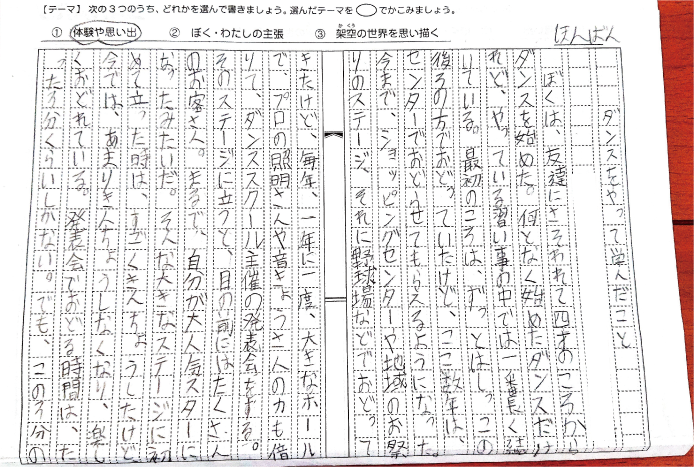 【テーマ】 次の3つのうち、どれかを選んで書きましょう。選んだテーマを◯でかこみましょう。
① 体験や思い出 ② ぼく・わたしの主張 ③ 架空の世界を思い描く
かくう
ほんばん
ダンスをやって学んだこと
ぼくは、友達にさそわれて四才のころから
ダンスを始めた。何となく始めたダンスだけ
れど、やっている習い事の中では一番長く続
けている。最初のころは、ずっとはしっこの
後ろの方でおどっていたけど、ここ数年は、
センターでおどらせてもらえるようになった。
今まで、ショッピングセンターや地域のお祭
りのステージ、それに野球場などでおどって
きたけど、毎年、一年に一度、大きなホール
で、プロの照明さんや音きょうさんの力も借
りて、ダンススクール主催の発表会をする。
そのステージに立つと、目の前にはたくさん
のお客さん。まるで、自分が大人気スターに
なったみたいだ。そんな大きなステージに初
めて立った時は、すごくきんちょうしたけど
今では、あまりきんちょうしなくなり、楽し
くおどれている。発表会でおどる時間は、た
った3分くらいしかない。でも、この3分の